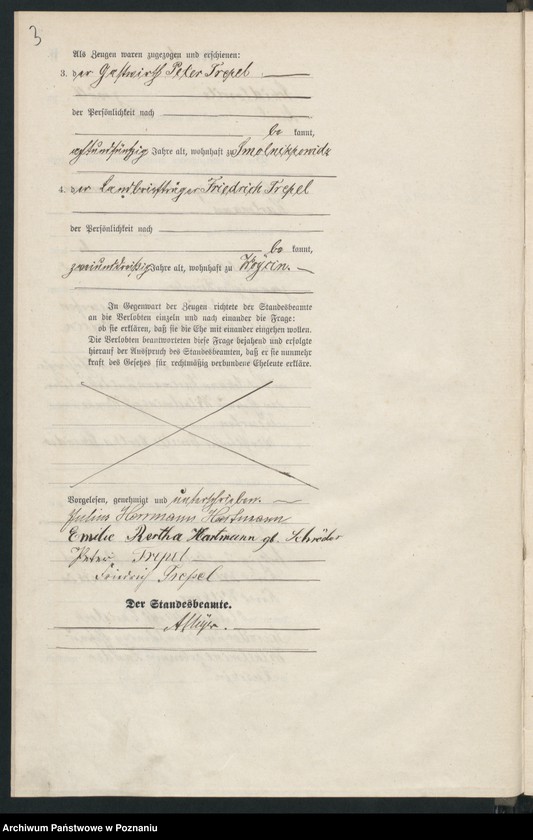 3
Als Zeugen waren zugezogen und erschienen:
3. der Gastwirth Peter Trepel
der Persönlichkeit nach
be kannt,
achtundfünfzig Jahre alt, wohnhaft zu
4. der Landbriefträger Friedrich Trepel
der Persönlichkeit nach
be kannt,
zweiunddreißig Jahre alt, wohnhaft zu
In Gegenwart der Zeugen richtete der Standesbeamte
an die Verlobten einzeln und nach einander die Frage:
ob sie erklären, daß sie die Ehe mit einander eingehen wollen.
Die Verlobten beantworteten diese Frage bejahend und erfolgte
hierauf der Ausspruch des Standesbeamten, daß er sie nunmehr
kraft des Gesetzes für rechtmäßig verbundene Eheleute erkläre.
Vorgelesen, genehmigt und unterschrieben.
Julius Herrmann Hartmann
Emilie Bertha Hartmann gb. Schröder
Peter Trepel
Friedrich Trepel
Der Standesbeamte.
Archiwum Państwowe w Poznaniu